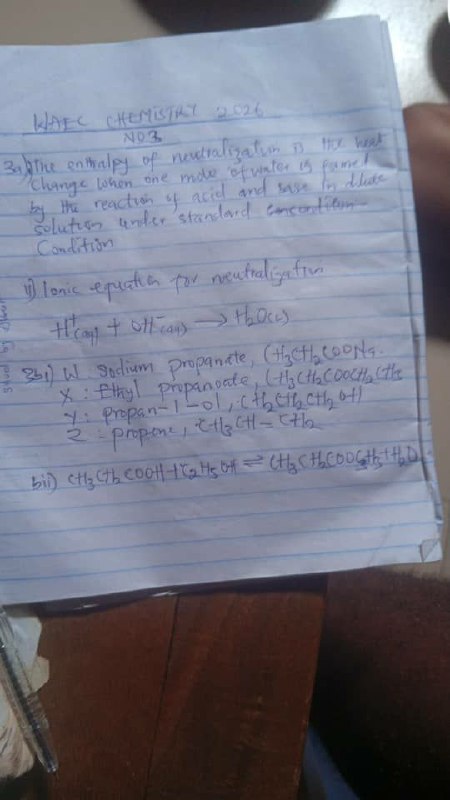 WAEC CHEMISTRY 2026
NO3
3ai) The enthalpy of neutralization is the heat
change when one mole of water is formed
by the reaction of acid and base in dilute
solution under standard
Condition
ii) Ionic equation for neutralization
H⁺(aq) + OH⁻(aq) → H₂O(l)
3bi) W sodium propanate, CH₃CH₂COONa.
X : Ethyl propanoate, CH₃CH₂COOCH₂CH₃
Y : propan-1-ol, CH₂CH₂CH₂OH
Z : propene, CH₃CH=CH₂
bii) CH₃CH₂COOH + C₂H₅OH ⇌ CH₃CH₂COOC₂H₅+H₂O